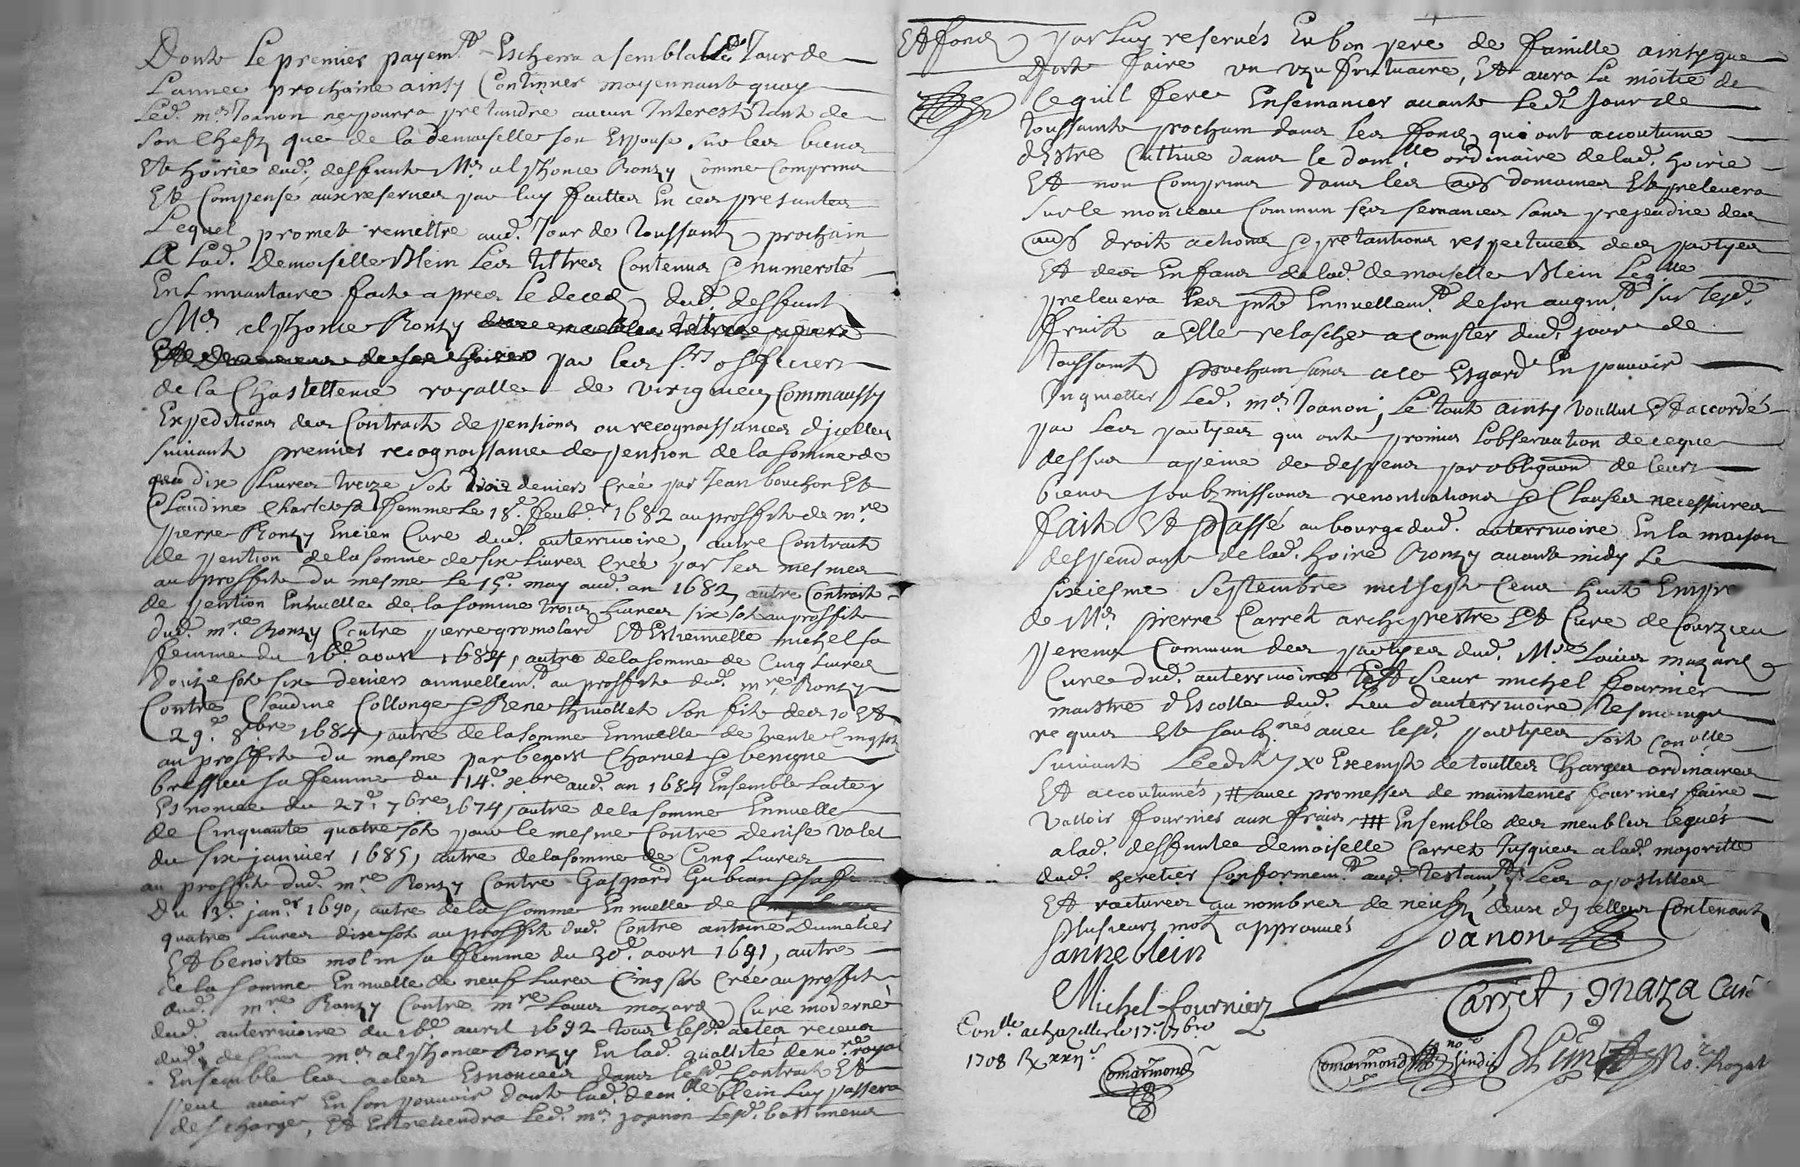 Dont le premier payemt Eschera a semblable Jour de
L'année prochaine ainsy Continuer moyennant quoy
Led. mr Joanon ne pourra pretandre aucun Interest tant de
son Chefz que de la demoiselle son Espouse sur les biens
Et hoirie dud. deffunt Mr alphonce Ronzy Comme Comprins
Et Compensé aux reserves par luy faittes En ces presantes
Lequel promet remettre aud. Jour de Toussaint prochain
A Lad. Demoiselle Blein Les tiltres Contenus & numerotés
En Linvantaire fait apres le deced dud. deffunt
Mr alphonce Ronzy
par les srs officiers
de la Chastellenie royalle de virigneu, Comm'aussy
Expeditions des Contrait de pensions ou recognoissances dicelles
suivant premier recognoissance de pension de la somme de
dix Livres treize sols trois deniers Créé par Jean bouchon Et
Claudine femme Le 18e feube 1682 au proffit de mre
pierre Ronzy Encien Curé dud. auterrivoire, autre Contrait
de pention de la somme de six Livres Créé par les mesmes
au proffit du mesme Le 15e may aud. an 1682, autre Contrait
de pention Ennuelle de la somme trois Livres six sols au proffit
dud. mre Ronzy Contre pierre gromolard Et Estiennette michel sa
femme du 16e aoust 1684, autre de la somme de Cinq Livres
Douze sols six deniers annuellemt au proffit dud. mre Ronzy
Contre Claudine Collonge & Rene thiollet son fils des 10 Et
29e 8bre 1684, autre de la somme Ennuelle de trente Cinq sols
au proffit du mesme par benoist Charvet & benigne
sa femme du 14e xbre aud. an 1684 Ensemble L'acte y
Esnoncé du 27e 7bre 1674, autre de la somme Ennuelle
de Cinquante quatre sols pour le mesme Contre Denise valet
du six janvier 1685, autre de la somme de Cinq Livres
au proffit dud. mre Ronzy Contre Gaspard
Du 13e janer 1690, autre de la somme Ennuelle de
quatre Livres dix sols au proffit dud. Contre antoine Dumelier
Et benoiste molin sa femme du 30e aoust 1691, autre
de la somme Ennuelle de neuf Livres Cinq sols Créé au proffit
dud. mre Ronzy Contre mre Louis mazard Curé moderne
dud. auterrivoire du 16e avril 1692 tous lesd. actes receus
dud. deffunt mr alphonce Ronzy En lad. quallité de nore royal
Ensemble les actes Esnoncés dans lesd. Contrait Et
peut avoir En son pouvoir dont lad. demlle blein Luy passera
descharge, Et Entretiendra Led. mr Joanon Lesd. bastimens
Et fonds par Luy reservés En bon pere de famille ainsy que
doit faire un uzufruituaire, Et aura La moitié de
Ce quil fera Ensemancer avant Led. Jour de
toussaint prochain dans les fonds qui ont accoutume
d'Estre Cultivé dans le domlle ordinaire de lad. hoirie
Et non Comprins dans les autres domaines Et prelevera
sur le monceau Commun ses semances sans prejudice des
autres droit actions & pretantions respectives des partyes
Et des Enfans de lad. demoiselle Blein Laqlle
prelevera Ennuellemt de son augmt sur lesd.
fruits a Elle relasché a compter dud. jour de
toussaint prochain sans a ce Esgard En pouvoir
Inquietter Led. mr Joanon, Le tout ainsy voullut Et accordé
par Les partyes qui ont promis L'observation de ce que
dessus a peine de despens par obligaons de leurs
biens soubzmissions renontiations & Clauses necessaires
fait Et Passé au bourg dud. auterrivoire En la maison
despendant de lad. hoirie Ronzy avant midy Le
sixiesme Septembre mil sept Cens huit En pre
de Mr pierre Carret archiprestre Et Curé de Courzieu
perens Commun des partyes dud. Mre Louis mazard
Curé dud. auterrivoire Et Sieur michel fournier
maistre d'Escolle dud. Lieu d'auterrivoire tesmoings
requis Et soubznés avec lesd. partyes soit Conollé
suivant Leedit Exempt de touttes Charges ordinaires
Et accoutumés, # avec promesses de maintenir fournir faire
valloir fournir aux frais # Ensemble des meubles legués
a lad. deffunte demoiselle Carret Jusques a lad. majorité
dud. heretier Conformemt aud. testamt, Les apostilles
Et ratures au nombre de neuf deux dycelles Contenant
plusieurs motz approuvés
Janne blein Joanon
Michel fournier Carret, Maza Curé
Conlle a chazelle le 17e 7bre
1708 R xxiis
Comarmond Comarmond no. sindic Blein No.re Royal